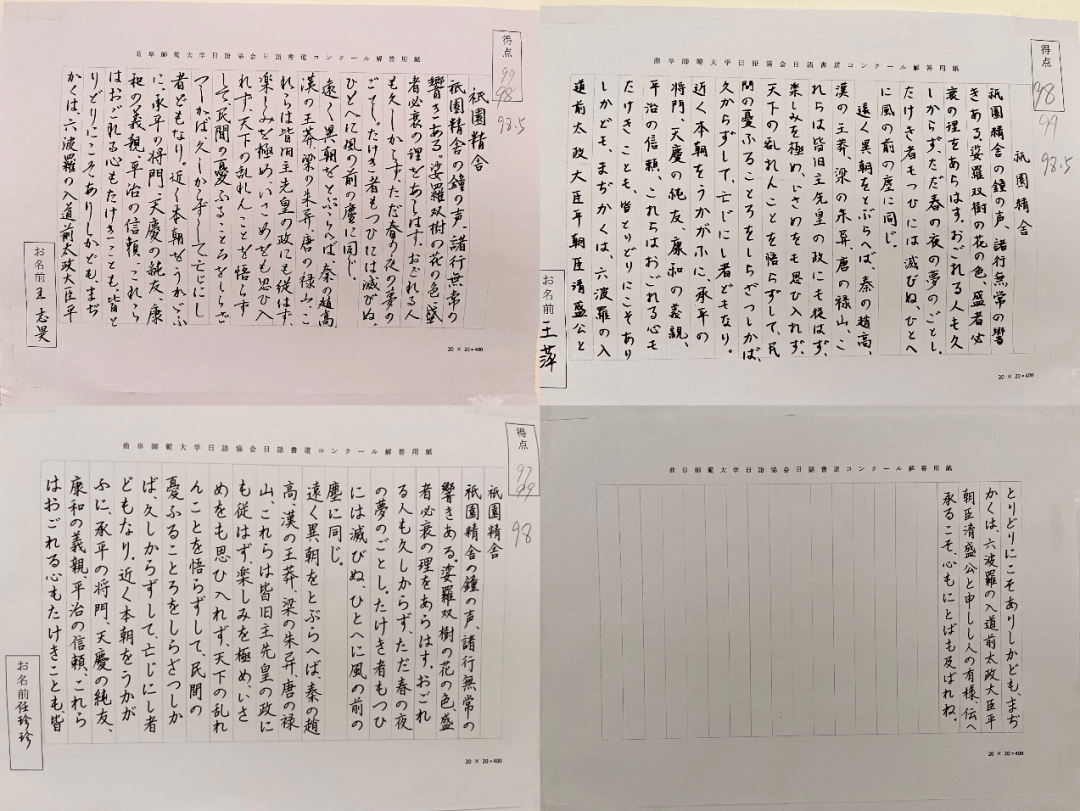 曲阜師範大学日語協会日語書道コンクール解答用紙
得点
99
98
98.5
祇園精舎
祇園精舎の鐘の声、諸行無常の
響きある。娑羅双樹の花の色、盛
者必衰の理をあらはす。おごれる人
も久しからず、ただ春の夜の夢の
ごとし。たけき者もつひには滅びぬ、
ひとへに風の前の塵に同じ。
遠く異朝をとぶらへば、秦の趙高、
漢の王莽、梁の朱异、唐の禄山、こ
れらは皆旧主先皇の政にも従はず、
楽しみを極め、いさめをも思ひ入
れず、天下の乱れんことを悟らず
して、民間の憂ふるところをしらざ
つしかば、久しからずして、亡じにし
者どもなり。近く本朝をうかがふ
に、承平の将門、天慶の純友、康
和の義親、平治の信頼、これら
はおごれる心もたけきことも、皆と
りどりにこそありしかども、まぢ
かくは、六波羅の入道前太政大臣平
お名前 王志昊
20 × 20=400
曲阜師範大学日語協会日語書道コンクール解答用紙
得点
98
99
98.5
祇園精舎
祇園精舎の鐘の声、諸行無常の響
きある。娑羅双樹の花の色、盛者必
衰の理をあらはす。おごれる人も久
しからず、ただ春の夜の夢のごとし。
たけき者もつひには滅びぬ、ひとへ
に風の前の塵に同じ。
遠く異朝をとぶらへば、秦の趙高、
漢の王莽、梁の朱异、唐の禄山、こ
れらは皆旧主先皇の政にも従はず、
楽しみを極め、いさめをも思ひ入れず、
天下の乱れんことを悟らずして、民
間の憂ふるところをしらざつしかば、
久からずして、亡じにし者どもなり。
近く本朝をうかがふに、承平の
将門、天慶の純友、康和の義親、
平治の信頼、これらはおごれる心も
たけきことも、皆とりどりにこそあり
しかども、まぢかくは、六波羅の入
道前太政大臣平朝臣清盛公と
お名前 王萍
20 × 20=400
曲阜師範大学日語協会日語書道コンクール解答用紙
得点
97
99
98
祇園精舎
祇園精舎の鐘の声、諸行無常の
響きある。娑羅双樹の花の色、盛
者必衰の理をあらはす。おごれ
る人も久しからず、ただ春の夜
の夢のごとし。たけき者もつひ
には滅びぬ、ひとへに風の前の
塵に同じ。
遠く異朝をとぶらへば、秦の趙
高、漢の王莽、梁の朱异、唐の禄
山、これらは皆旧主先皇の政に
も従はず、楽しみを極め、いさ
めをも思ひ入れず、天下の乱れ
んことを悟らずして、民間の
憂ふるところをしらざつしか
ば、久しからずして、亡じにし者
どもなり。近く本朝をうかが
ふに、承平の将門、天慶の純友、
康和の義親、平治の信頼、これら
はおごれる心もたけきことも、皆
お名前 任珍珍
20 × 20=400
曲阜師範大学日語協会日語書道コンクール解答用紙
とりどりにこそありしかども、まぢ
かくは、六波羅の入道前太政大臣平
朝臣清盛公と申しし人の有様、伝へ
承るこそ、心もことばも及ばれね。
20 × 20=400